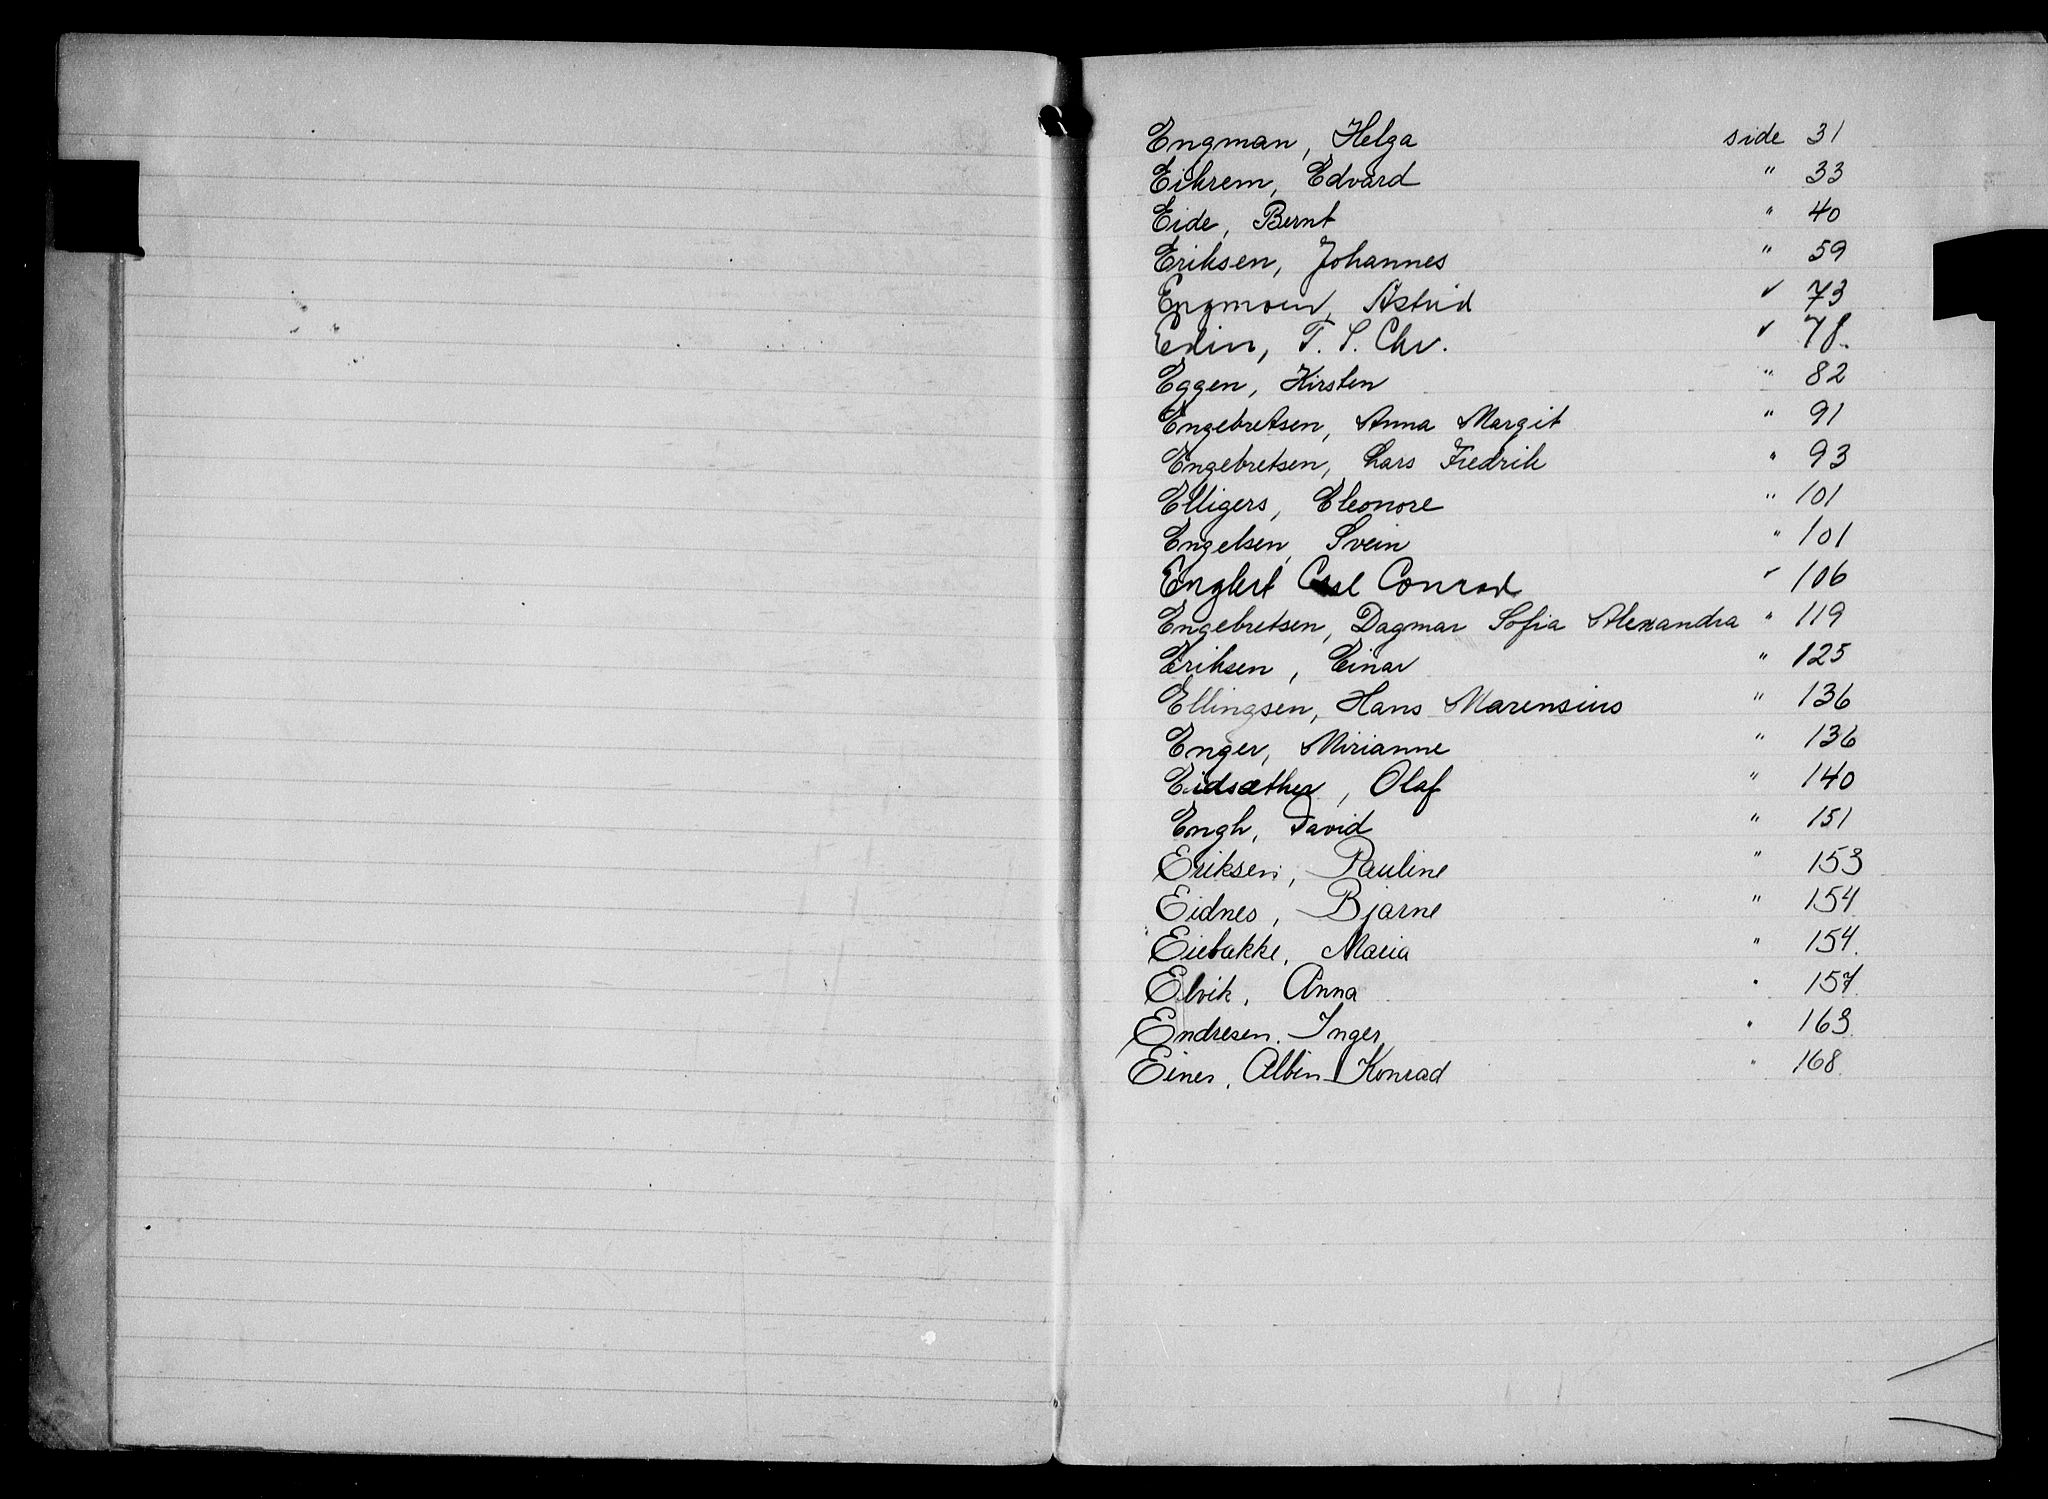 Engman, Helga side 31
Eikrem, Edvard " 33
Eide, Bernt " 40
Eriksen, Johannes " 59
Engmoen, Astrid " 73
Edin, T. S. Chr. " 78.
Eggen, Kirsten " 82
Engebretsen, Anna Margit " 91
Engebretsen, Lars Fredrik " 93
Elligers, Eleonore " 101
Engelsen, Svein " 101
Englert Carl Conrad " 106
Engebretsen, Dagmar Sofia Alexandra " 119
Eriksen, Einar " 125
Ellingsen, Hans Marensius " 136
Enger, Mirianne " 136
Eidsæther, Olaf " 140
Engh, David " 151
Eriksen, Pauline " 153
Eidnes, Bjarne " 154
Eiebakke, Maria " 154.
Elvik, Anna " 157.
Endresen. Inger " 163.
Eines, Albin Konrad " 168.